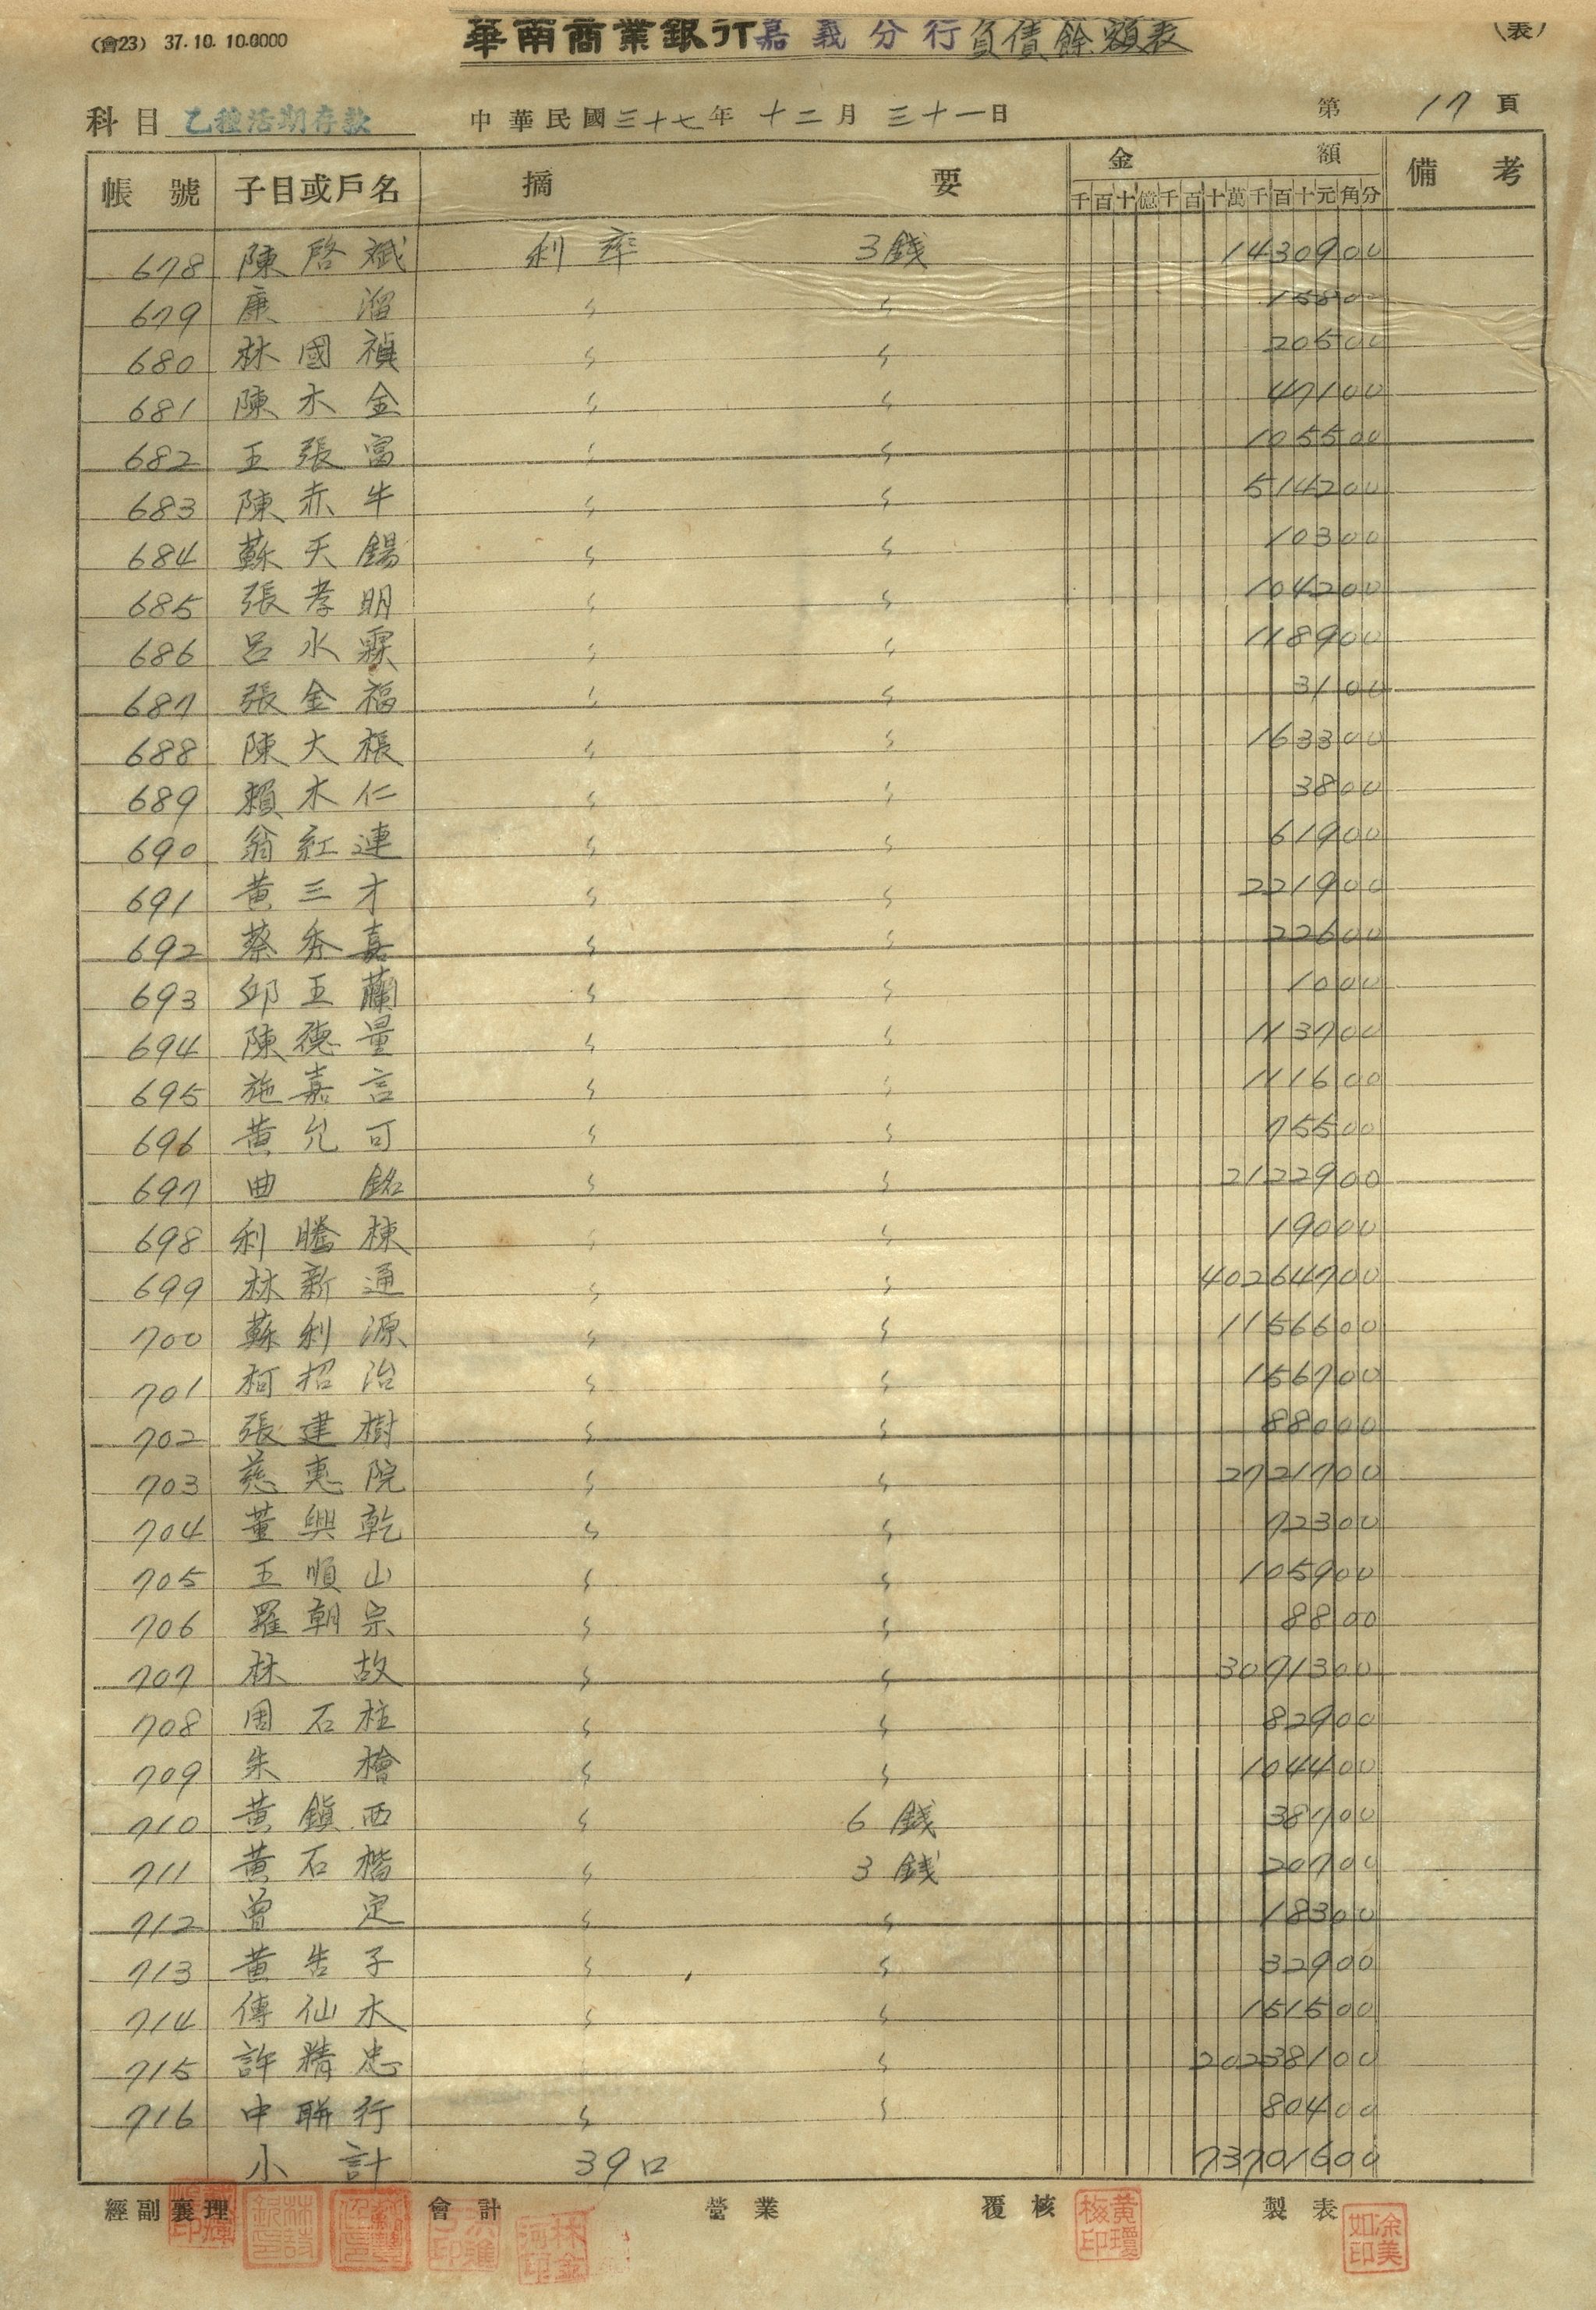 (會23) 37.10. 10.0000
華南商業銀行嘉義分行負債餘額表
(表)
科目 乙種活期存款 中華民國三十七年 十二月 三十一日 第 17 頁
帳號 子目或戶名 摘要 金額 備考
千百十億千百十萬千百十元角分
678 陳啓斌 利率 3錢 1430900
679 康溜 〃 〃 15800
680 林國禎 〃 〃 20500
681 陳木金 〃 〃 47100
682 王張富 〃 〃 105500
683 陳赤牛 〃 〃 514200
684 蘇天錫 〃 〃 10300
685 張孝明 〃 〃 104200
686 呂水霖 〃 〃 118900
687 張金福 〃 〃 3100
688 陳大振 〃 〃 163300
689 賴木仁 〃 〃 3800
690 翁紅連 〃 〃 61900
691 黃三才 〃 〃 221900
692 蔡秀嘉 〃 〃 22600
693 邱玉蘭 〃 〃 1000
694 陳德量 〃 〃 113700
695 施嘉言 〃 〃 111600
696 黃允可 〃 〃 75500
697 曲銘 〃 〃 2122900
698 利騰棟 〃 〃 19000
699 林新通 〃 〃 40264700
700 蘇利源 〃 〃 1156600
701 柯招治 〃 〃 156700
702 張建樹 〃 〃 88000
703 慈惠院 〃 〃 2721700
704 董興乾 〃 〃 72300
705 王順山 〃 〃 105900
706 羅朝宗 〃 〃 8800
707 林故 〃 〃 3071300
708 周石柱 〃 〃 82900
709 朱檜 〃 〃 104400
710 黃鎮西 〃 6錢 38700
711 黃石楷 〃 3錢 20700
712 曾定 〃 〃 18300
713 黃告子 〃 〃 32900
714 傳仙水 〃 〃 151500
715 許精忠 〃 20238100
716 中聯行 〃 〃 80400
小計 39口 73701600
經副襄理 會計 營業 覆核 製表
黃瓊梅印
涂美如印